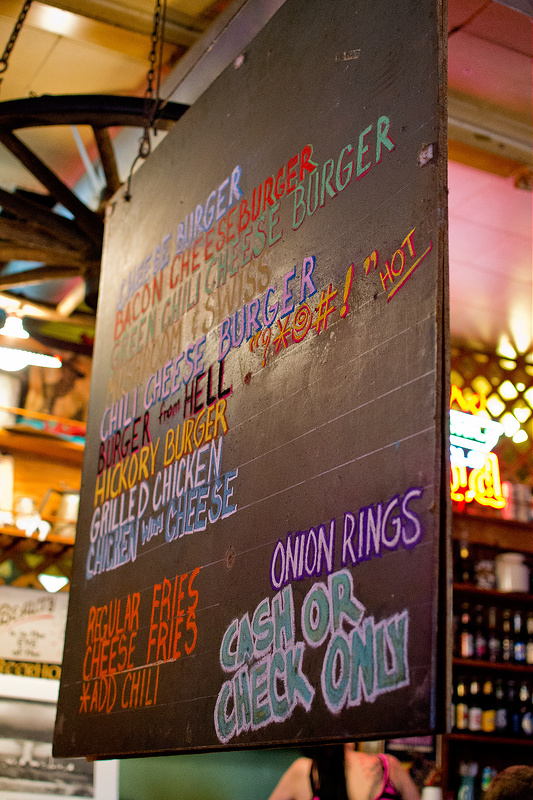 CHEESE BURGER
BACON CHEESEBURGER
GREEN CHILI CHEESE BURGER
MUSHROOM & SWISS
CHILI CHEESE BURGER
BURGER from HELL "?*@#! " HOT
HICKORY BURGER
GRILLED CHICKEN
CHICKEN with CHEESE
REGULAR FRIES
CHEESE FRIES
*ADD CHILI
ONION RINGS
CASH OR
CHECK ONLY